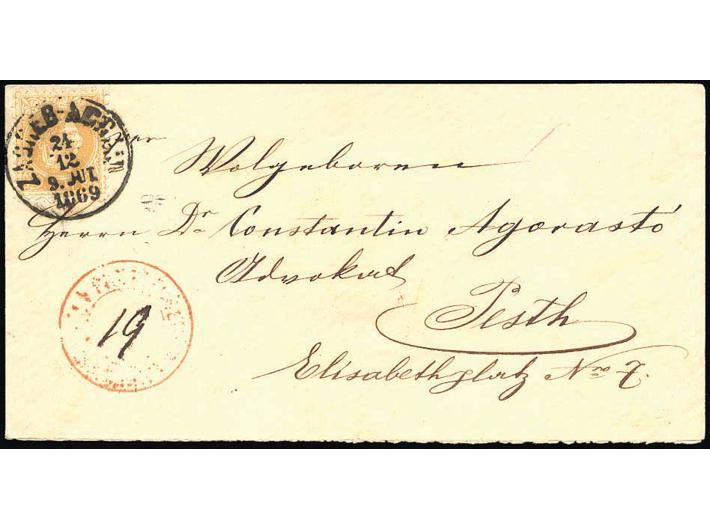 ZAGREB-AGRAM
24
12
9. JUL
1869
Wolgeboren
Herrn Dr Constantin Agorastó
Advokat
19
Pesth
Elisabethplatz Nro 7.